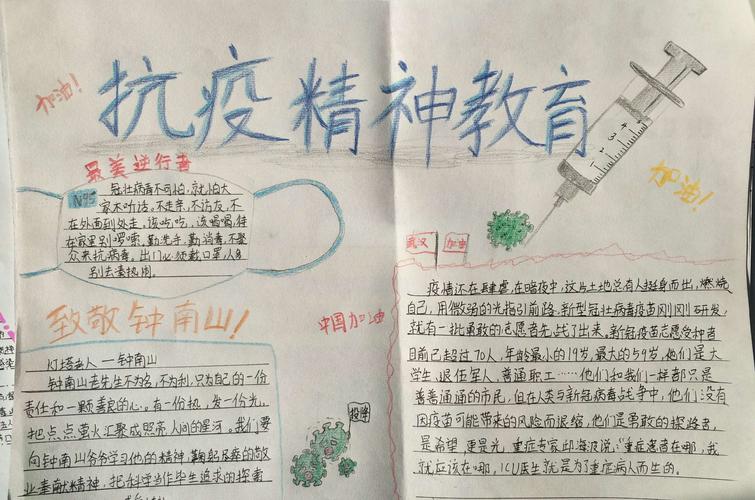 抗疫精神教育
加油!
最美逆行者
N95
冠壮病毒不可怕,就怕大
家不听话。不走亲,不访友,不
在外面到处走,该吃吃,该喝喝,待
在家里别啰嗦,勤洗手,勤消毒,不聚
众来抗病毒。出门必须戴口罩,人多
别去凑热闹。
4
3
2
1
加油!
武汉
加油
致敬钟南山!
中国加油
投降
灯塔老人—钟南山
钟南山老先生不为名,不为利,只为自己的一份
责任和一颗善良的心。有一份热,发一份光。
把点点萤火汇聚成照亮人间的星河。我们要
向钟南山爷爷学习他的精神,鞠躬尽瘁的敬
业奉献精神,把科学当作毕生追求的探索
疫情还在肆虐,在暗夜中,这片土地总有人挺身而出,燃烧
自己,用微弱的光指引前路,新型冠壮病毒疫苗刚刚研发,
就有一批勇敢的志愿者先战了出来。新冠疫苗志愿受种者
目前已超过70人,年龄最小的19岁,最大的59岁,他们是大
学生、退伍军人、普通职工……他们和我们一样都只是
普普通通的市民,但在人类与新冠病毒战争中,他们没有
因疫苗可能带来的风险而退缩,他们是勇敢的探路者,
是希望,更是光,重症专家邱海波说,“重症患者在哪,我
就应该在哪,ICU医生就是为了重症病人而生的。